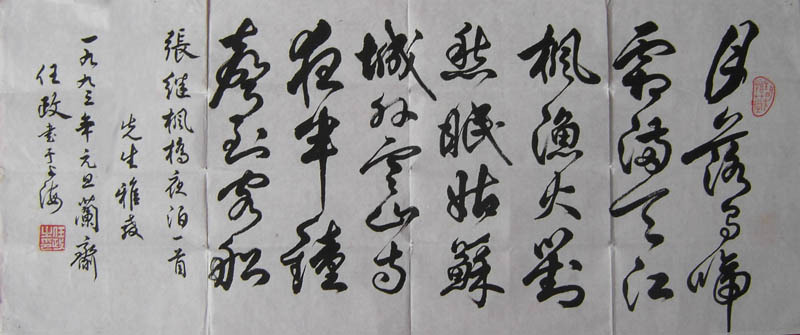 月落烏啼
霜滿天江
楓漁火對
愁眠姑蘇
城外寒山寺
夜半鐘
聲到客船
張继楓橋夜泊一首
先生雅教
一九九三年元旦蘭齋
任政書于上海